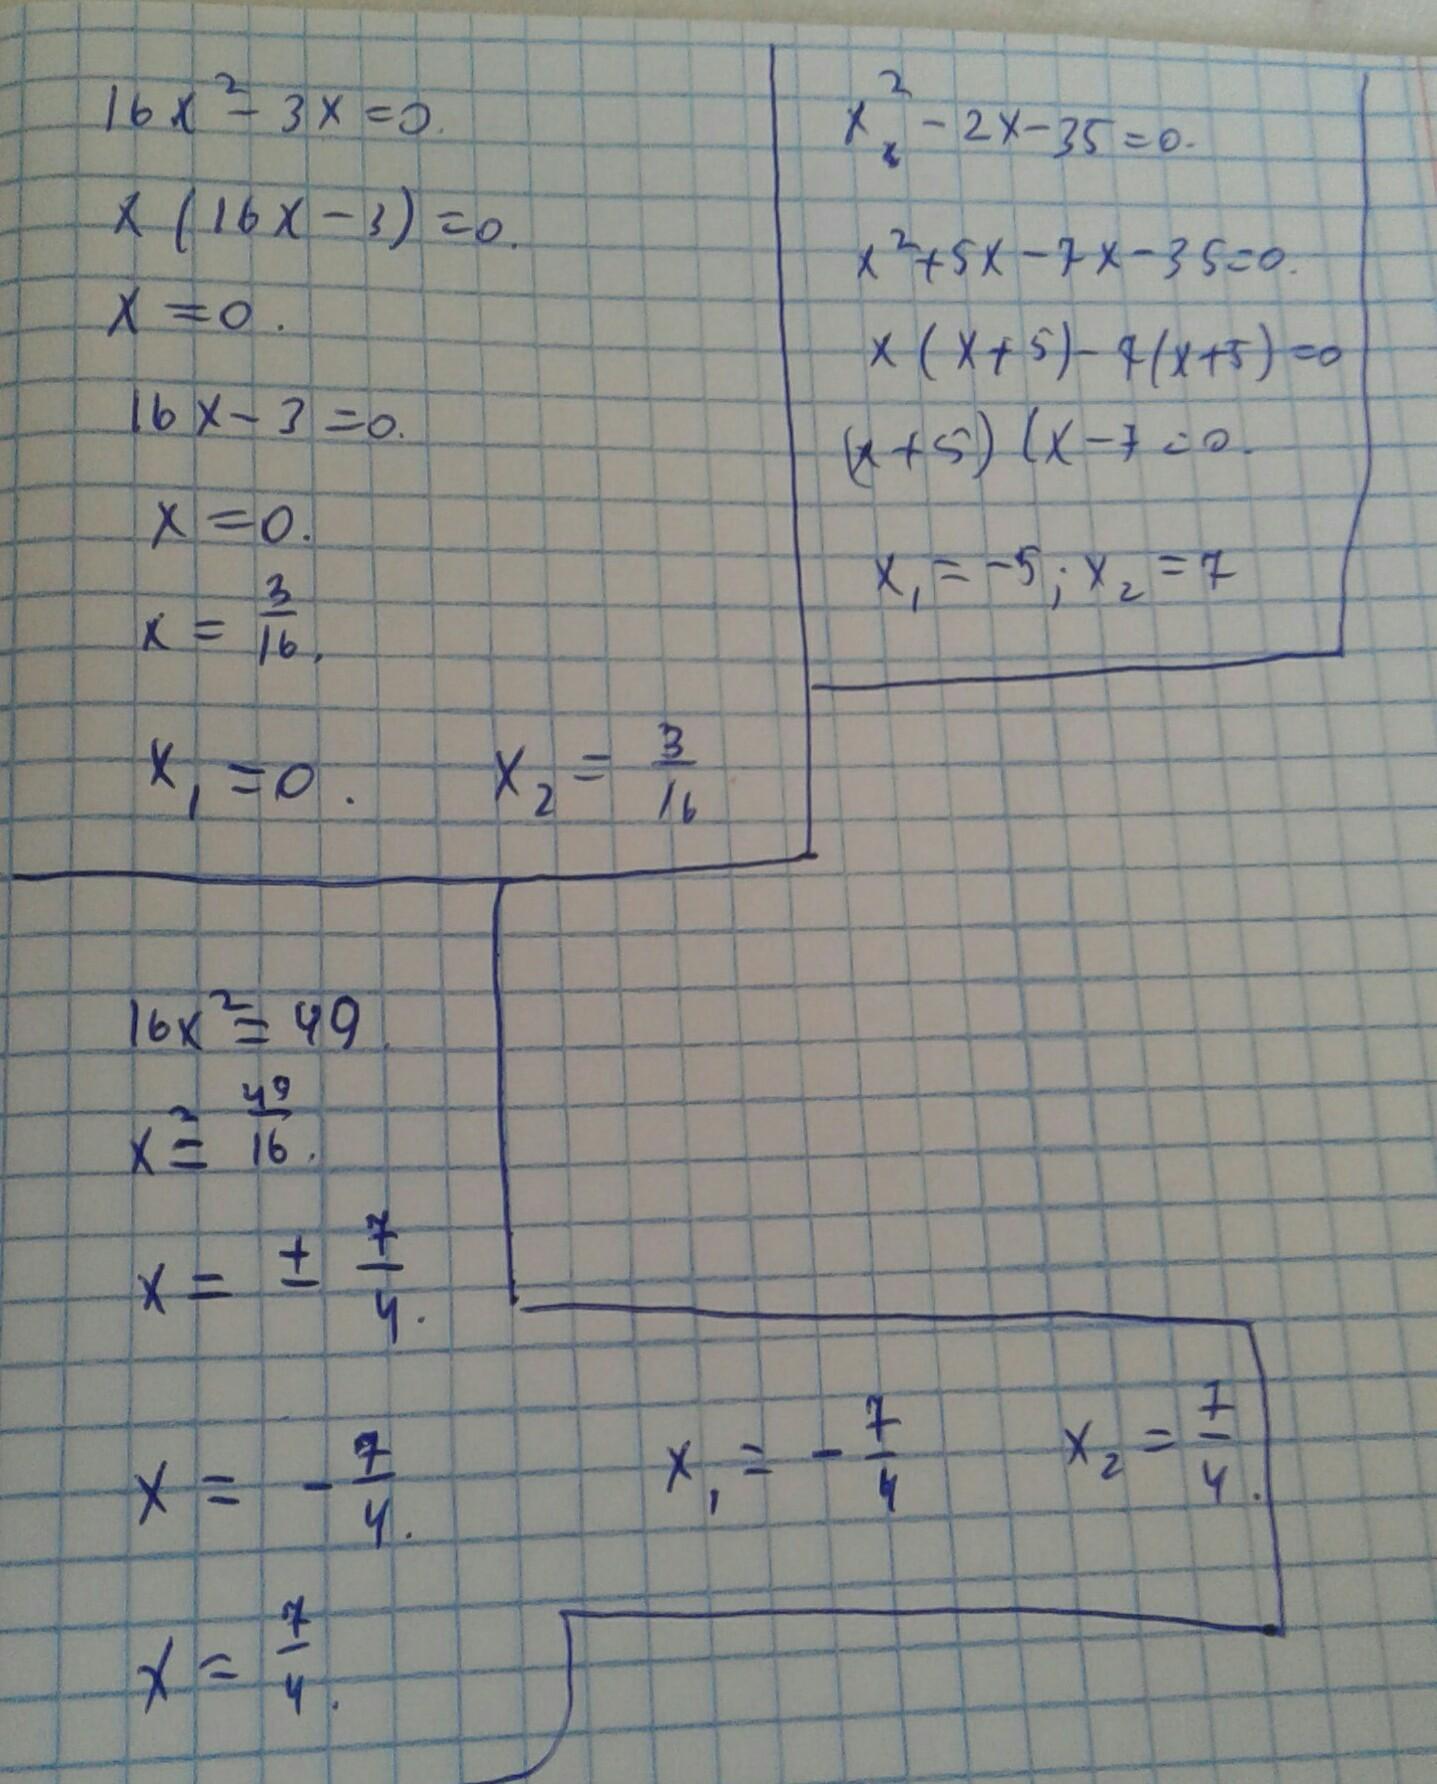 16x² - 3x = 0.
x (16x - 3) = 0.
x = 0.
16x - 3 = 0.
x = 0.
x = 3/16.
x₁ = 0. x₂ = 3/16
x² - 2x - 35 = 0.
x² + 5x - 7x - 35 = 0.
x (x + 5) - 7(x + 5) = 0
(x + 5) (x - 7 = 0.
x₁ = -5; x₂ = 7
16x² = 49
x² = 49/16.
x = ± 7/4.
x = - 7/4.
x = 7/4.
x₁ = - 7/4 x₂ = 7/4.